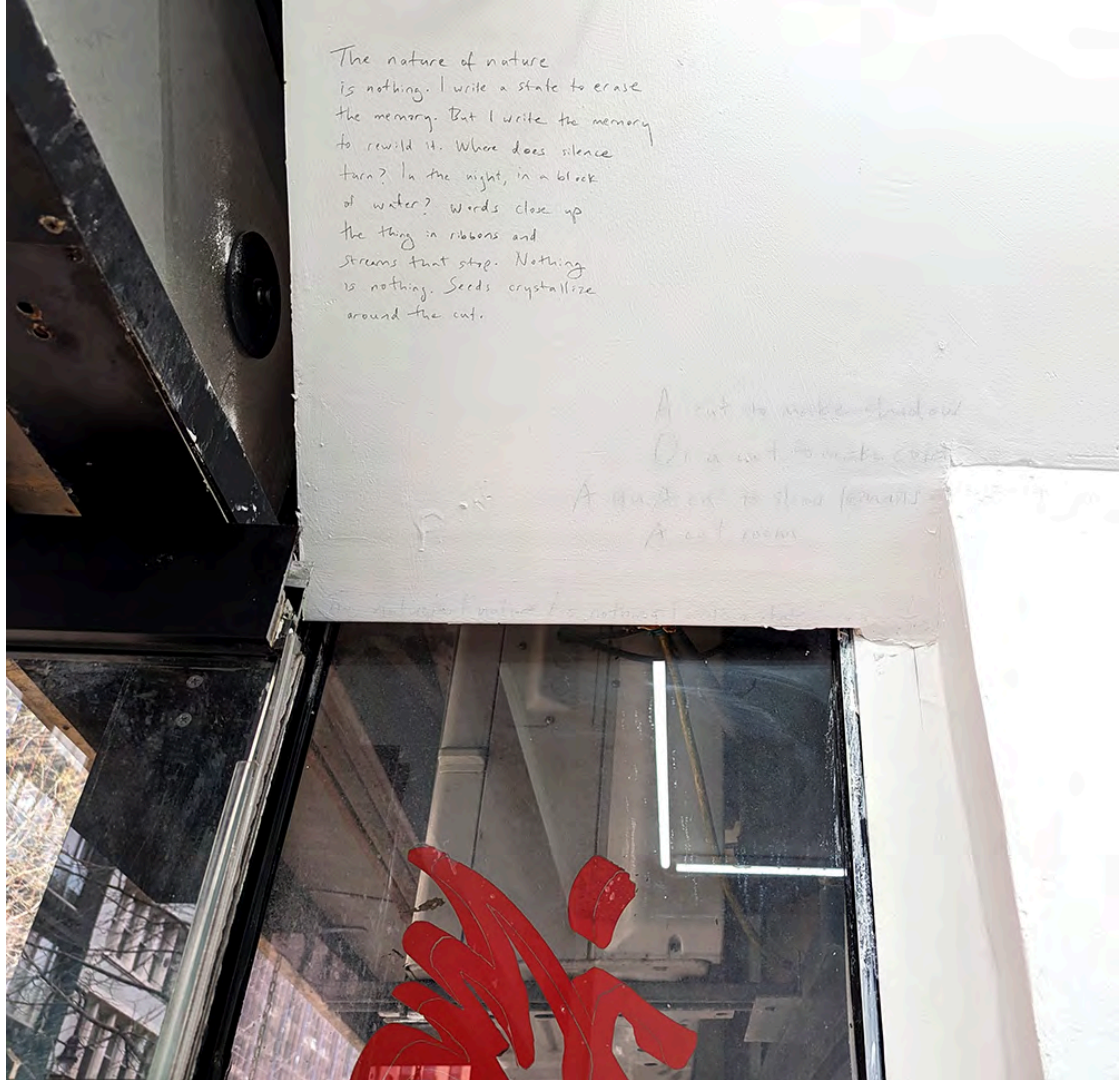 The nature of nature
is nothing. I write a state to erase
the memory. But I write the memory
to rewild it. Where does silence
turn? In the night, in a block
of water? Words close up
the thing in ribbons and
streams that stop. Nothing
is nothing. Seeds crystallize
around the cut.
A cut to make shadow
Or a cut to make
A is remains
A cut rooms
nature is nothing I